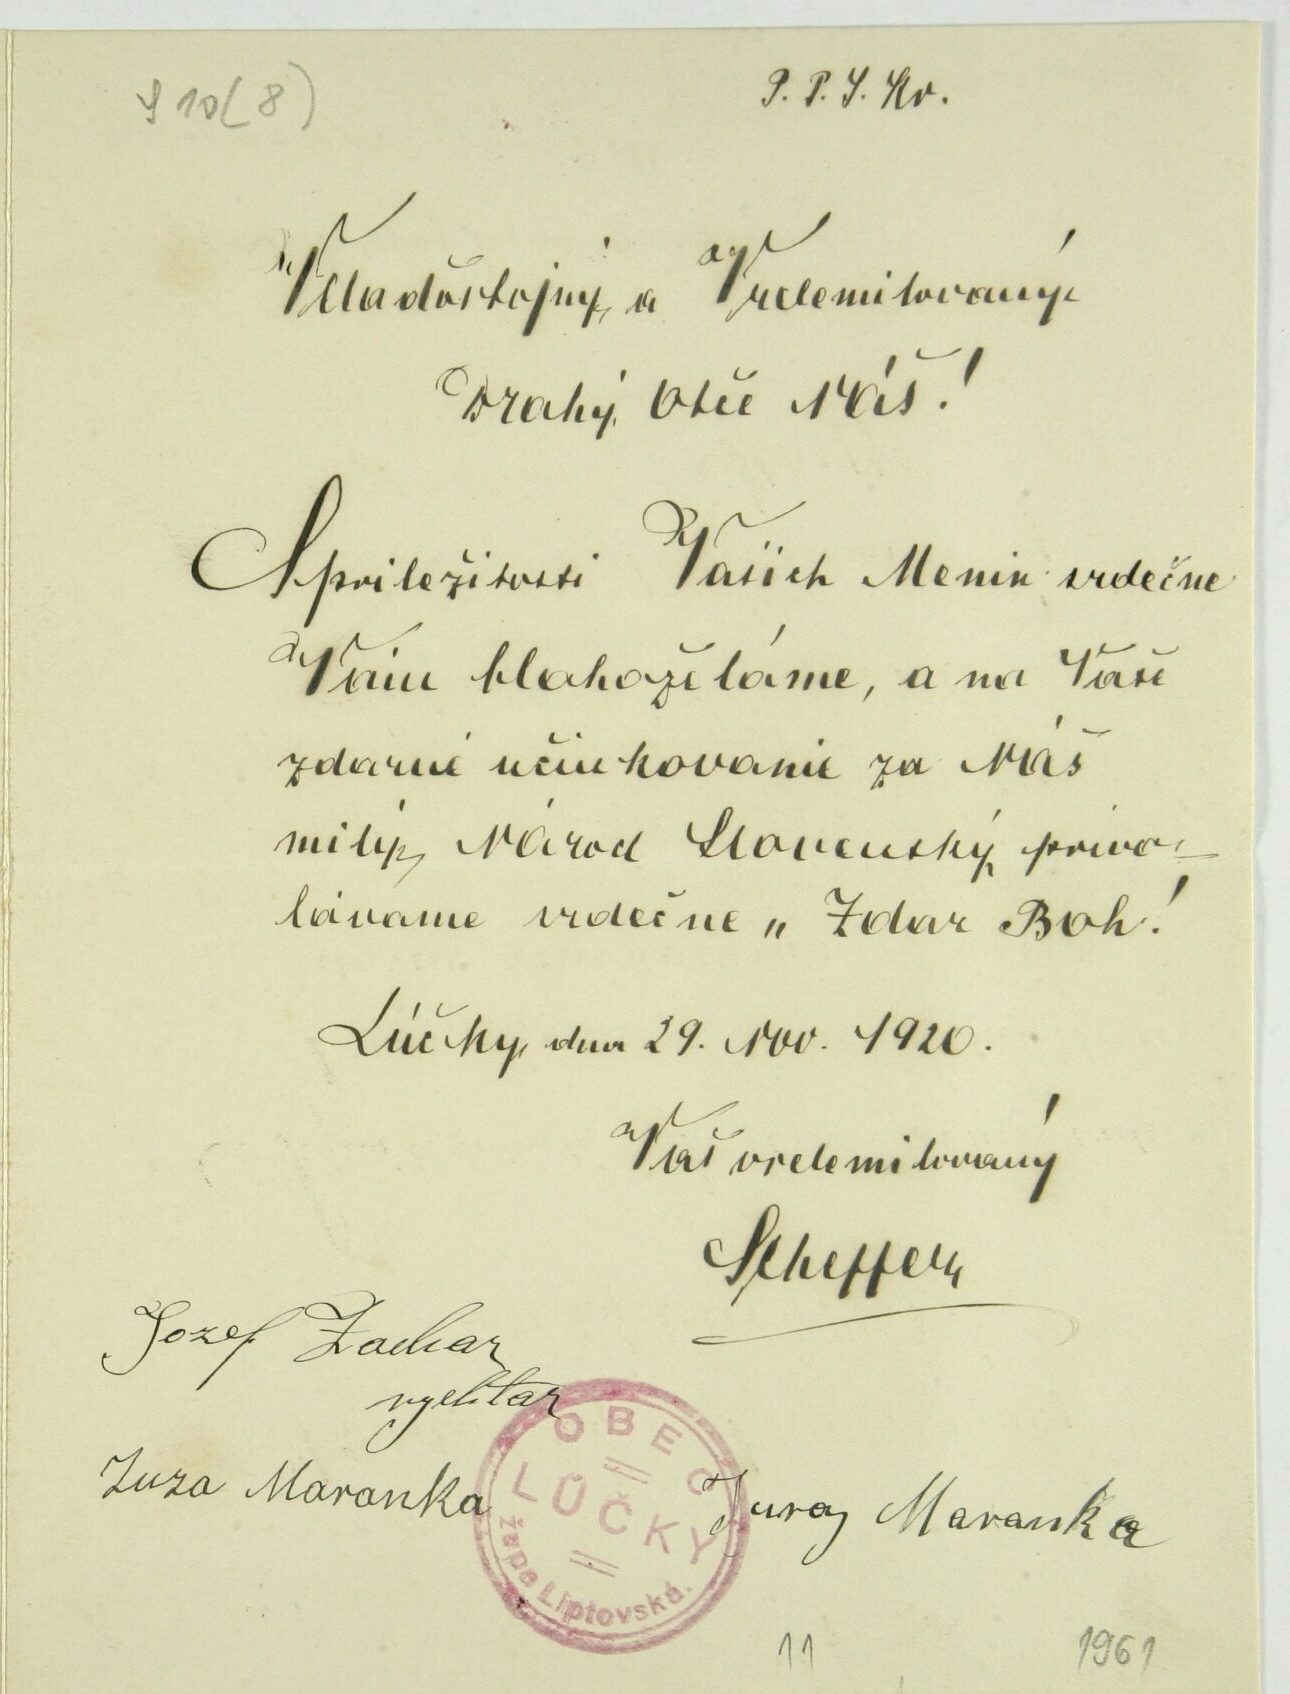 S 10 (8)
P. P. J. Kr.
Veľadôstojný, a Vrelemilovaný
Drahý, Otče Náš!
S príležitosti Vašich Menin srdečne
Vám blahoželáme, a na Vaše
zdarné učinkovanie za Náš
milý, Národ Slovenský, privo-
lávame srdečne „Zdar Boh!
Lúčky, dňa 29. Nov. 1920.
Váš vrelemilovaný
Scheffer
Jozef Zachar
Zuza Maranka
Juraj Maranka
OBEC
LÚČKY
župa Liptovská.
11
1961